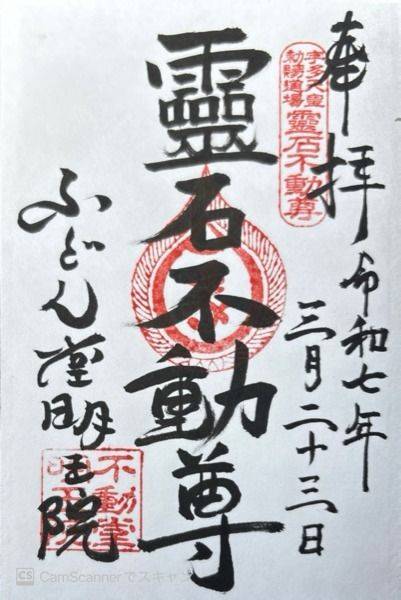 奉拝
令和七年
三月二十三日
宇多天皇
勅願道場
霊石不動尊
靈石不動尊
ふどん堂明王院
不動堂
CS CamScannerでスキャン